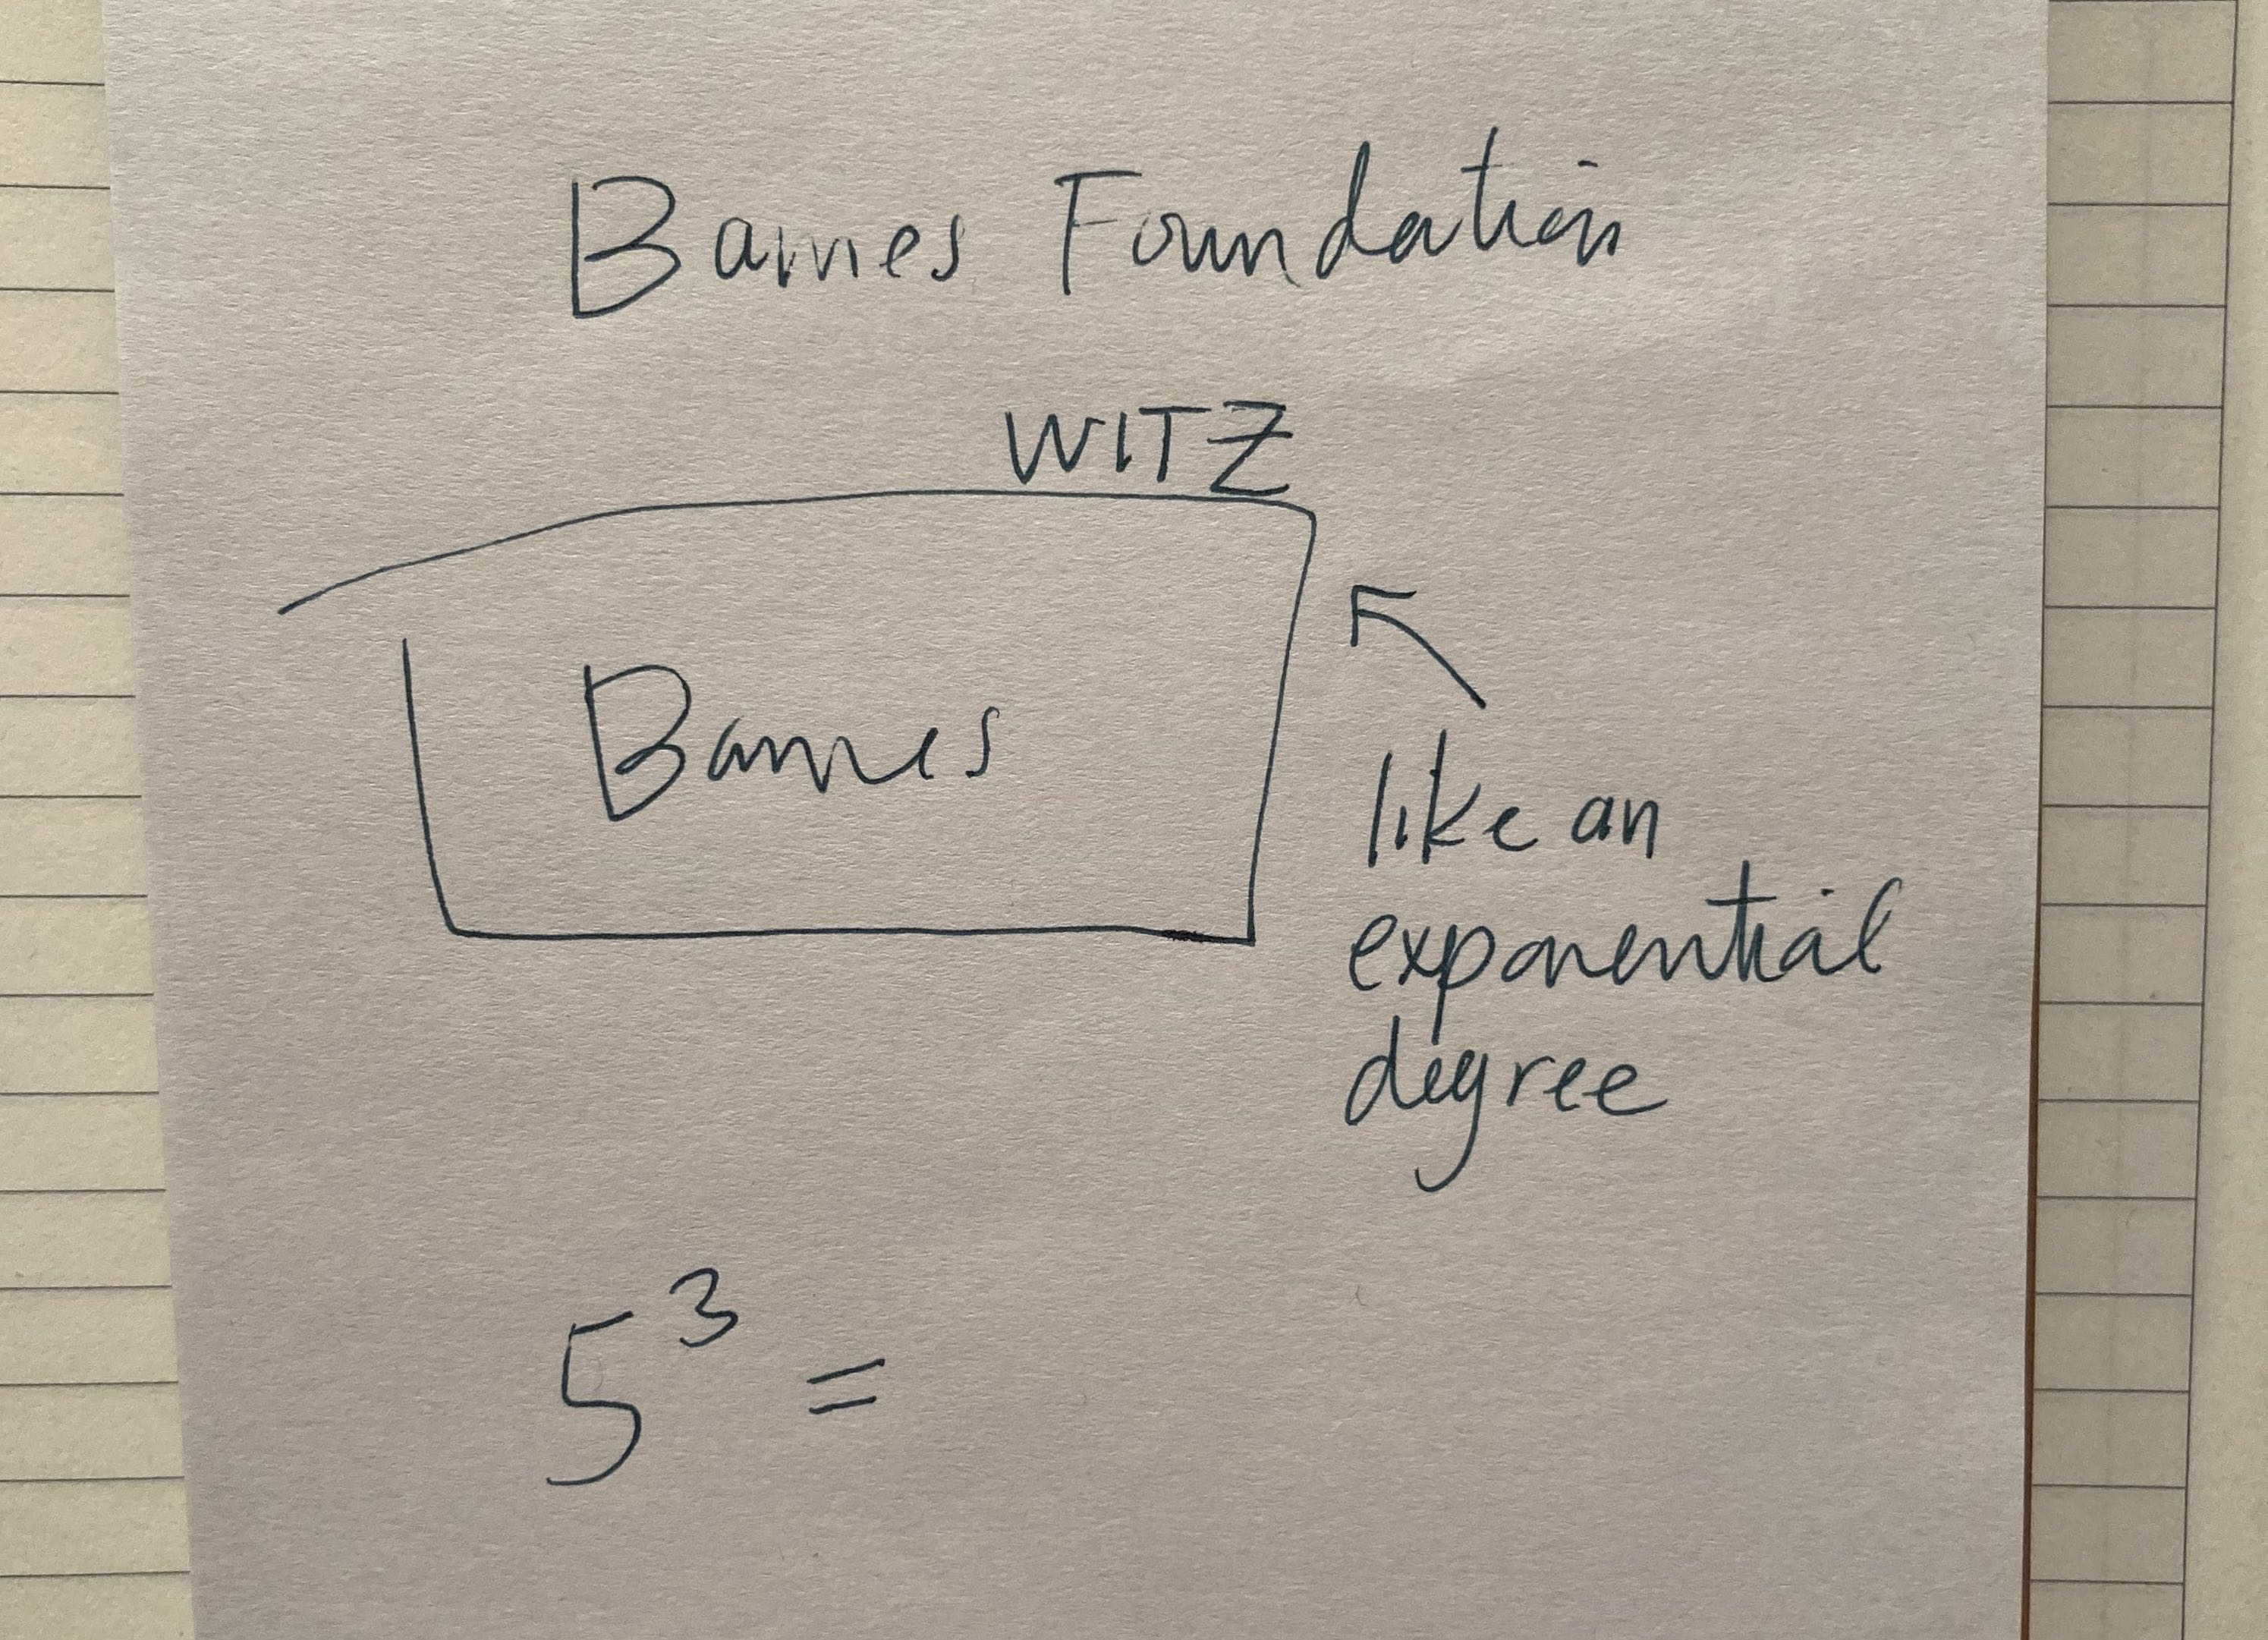 Barnes Foundation
WITZ
Barnes
like an
exponential
degree
5³ =